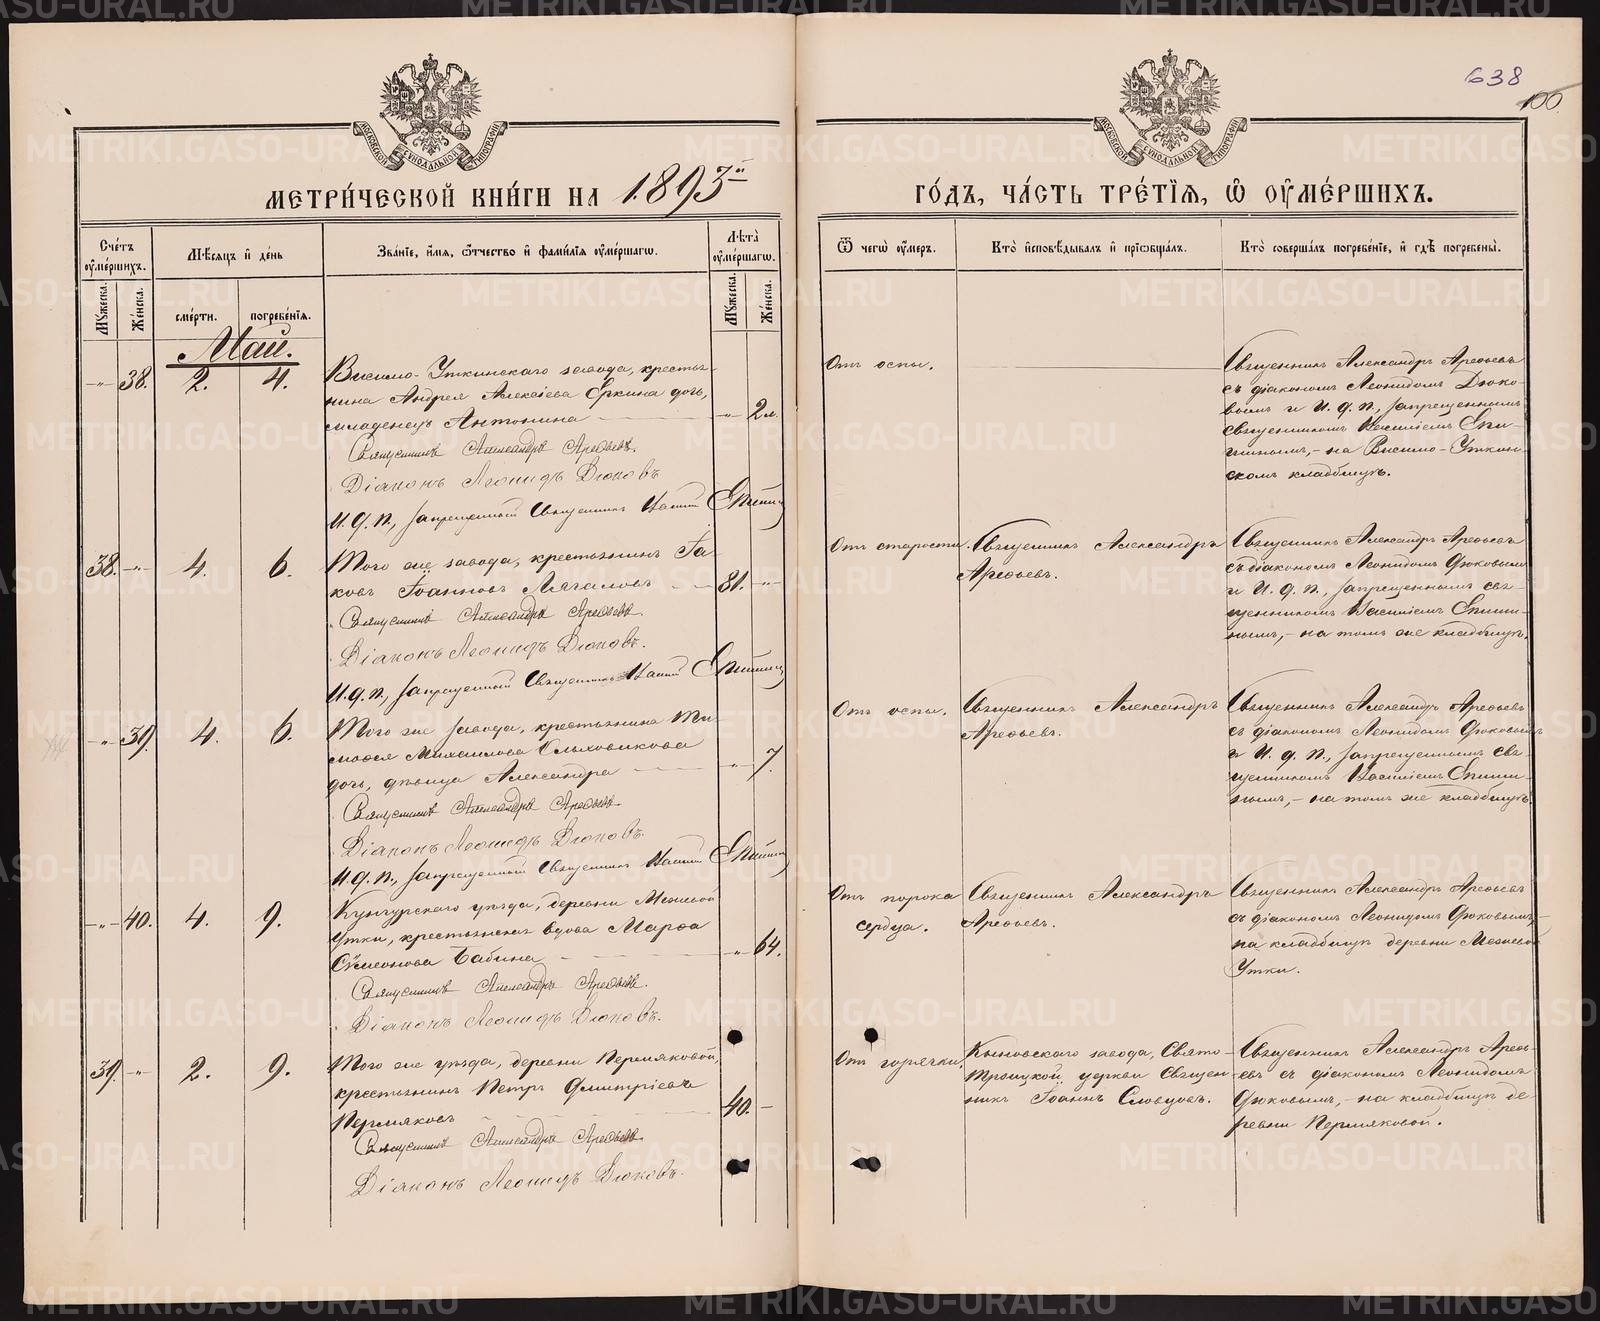 638
100
МОСКОВСКОЙ СѴНОДАЛЬНОЙ ТИПОГРАФІИ
МОСКОВСКОЙ СѴНОДАЛЬНОЙ ТИПОГРАФІИ
МЕТРИ́ЧЕСКОЙ КНИ́ГИ НА 1893й
ГО́ДЪ, ЧА́СТЬ ТРЕ́ТІЯ, Ѽ ОУ҆МЕ́РШИХЪ.
Сче́тъ оу҆ме́ршихъ.
Мѣ́сяцъ и҆ де́нь
Зва́ніе, и҆́мя, ѻ҆́тчество и҆ фами́лія оу҆ме́ршагѡ.
Лѣ́та оу҆ме́ршагѡ.
Ѿ чегѡ̀ оу҆́меръ.
Кто̀ и҆сповѣ́дывалъ и҆ прїѡбща́лъ.
Кто̀ соверша́лъ погребе́ніе, и҆ гдѣ̀ погребены̀.
Му́жеска.
Же́нска.
сме́рти.
погребе́нія.
Му́жеска.
Же́нска.
Май.
–„– 38. 2. 4.
Висимо-Уткинскаго завода, крестья-
нина Андрея Алексіева Еркина дочь,
младенецъ Антонина
–„– 2 м.
Священникъ Александръ Арефьевъ.
Діаконъ Леонидъ Дюковъ
И. д. п., запрещенный Священникъ Василій Епишинъ
Отъ оспы.
Священникъ Александръ Арефьевъ
съ діакономъ Леонидомъ Дюко-
вымъ и И. д. п., запрещеннымъ
священникомъ Василіемъ Епи-
шинымъ,– на Висимо-Уткин-
скомъ кладбищѣ.
38. –„– 4. 6.
Того же завода, крестьянинъ Іа-
ковъ Іоанновъ Лягаловъ
81. –„–
Священникъ Александръ Арефьевъ
Діаконъ Леонидъ Дюковъ.
И. д. п., запрещенный Священникъ Василій Епишинъ
Отъ старости.
Священникъ Александръ
Арефьевъ.
Священникъ Александръ Арефьевъ
съ діакономъ Леонидомъ Дюковымъ
и И. д. п., запрещеннымъ свя-
щенникомъ Василіемъ Епиши-
нымъ,– на томъ же кладбищѣ.
–„– 39. 4. 6.
Того же завода, крестьянина Ти-
мофея Михаилова
дочь, дѣвица Александра
–„– 7.
Священникъ Александръ Арефьевъ
Діаконъ Леонидъ Дюковъ.
И. д. п., запрещенный Священникъ Василій Епишинъ
Отъ оспы.
Священникъ Александръ
Арефьевъ.
Священникъ Александръ Арефьевъ
съ діакономъ Леонидомъ Дюковымъ
и И. д. п., запрещеннымъ свя-
щенникомъ Василіемъ Епиши-
нымъ,– на томъ же кладбищѣ.
–„– 40. 4. 9.
Кунгурскаго уѣзда, деревни Межевой
Утки, крестьянская вдова Марфа
Сѵмеонова Бабина
–„– 64.
Священникъ Александръ Арефьевъ.
Діаконъ Леонидъ Дюковъ.
Отъ порока
сердца.
Священникъ Александръ
Арефьевъ.
Священникъ Александръ Арефьевъ
съ діакономъ Леонидомъ Дюковымъ,–
на кладбищѣ деревни Межевой
Утки.
39. –„– 2. 9.
Того же уѣзда, деревни Пермяковой,
крестьянинъ Петръ Димитріевъ
Пермяковъ
40. –
Священникъ Александръ Арефьевъ
Діаконъ Леонидъ Дюковъ.
Отъ горячки.
Кыновскаго завода, Свято-
Троицкой церкви Священ-
никъ Іоаннъ Словцовъ.
Священникъ Александръ Арефь-
евъ съ діакономъ Леонидомъ
Дюковымъ,– на кладбищѣ де-
ревни Пермяковой.
METRIKI.GASO-URAL.RU